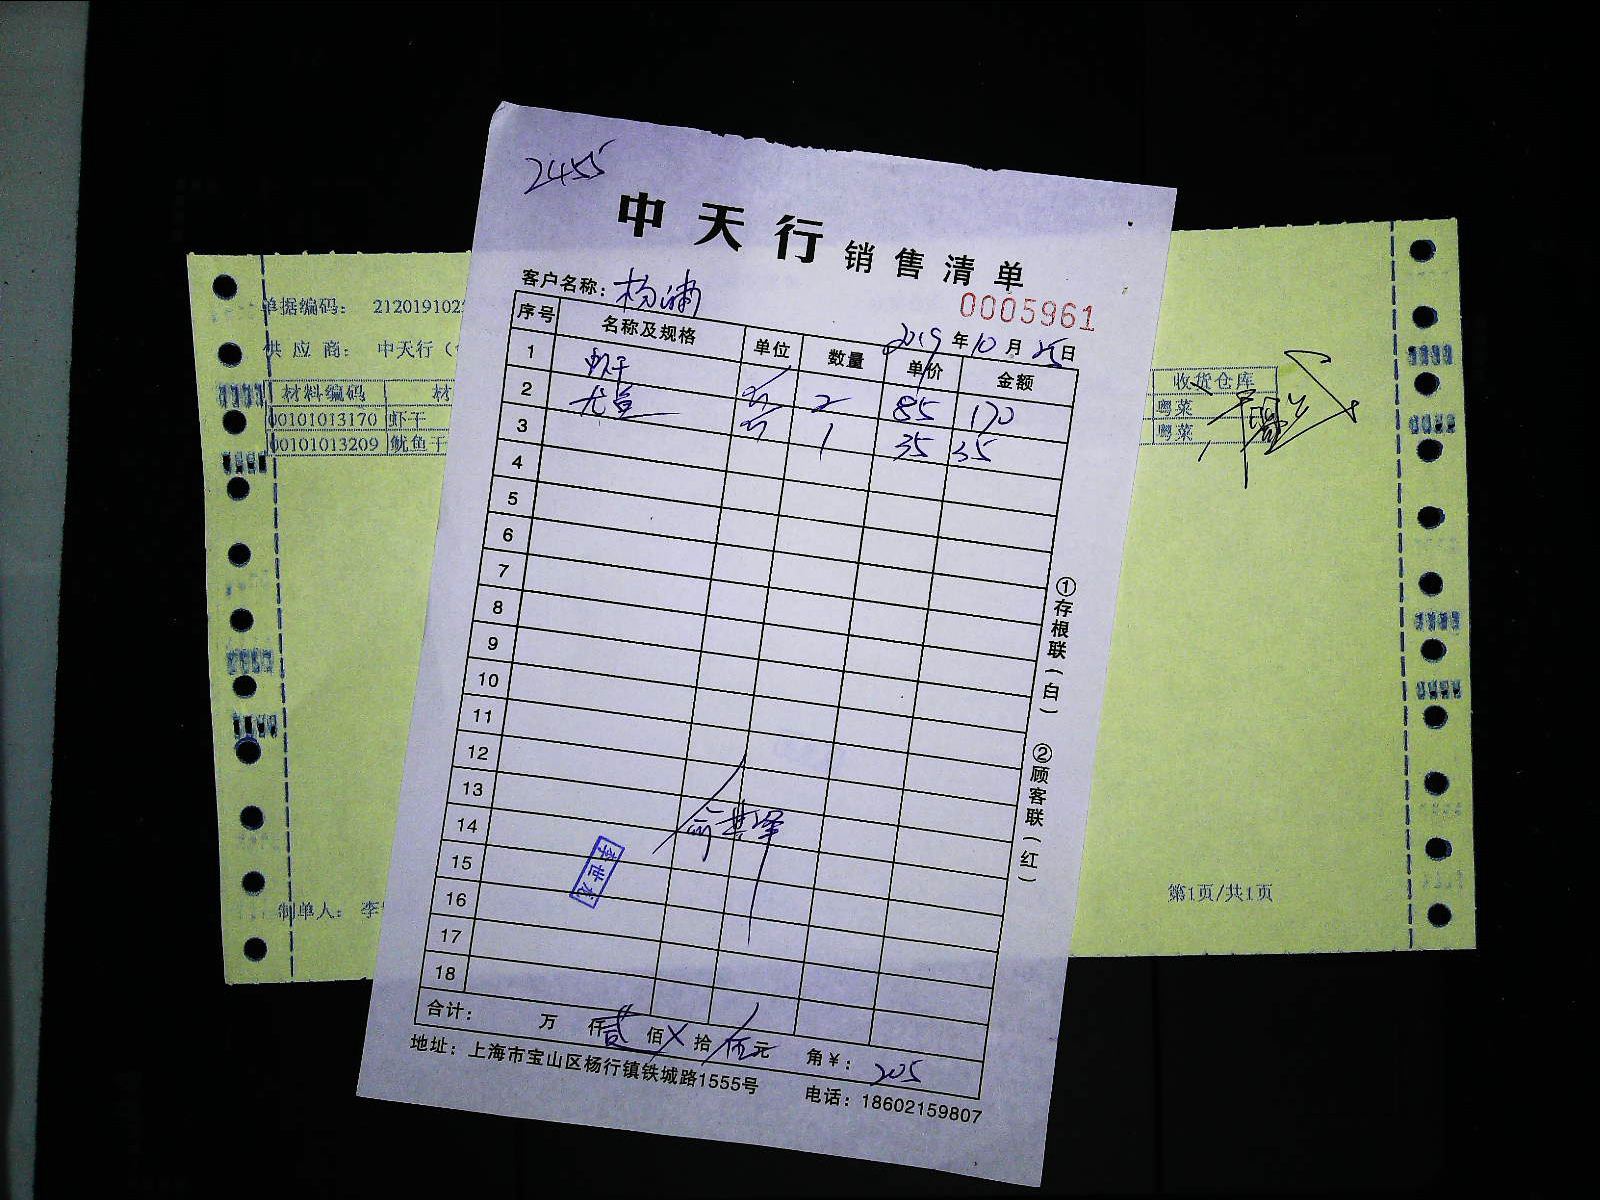 2455
中天行销售清单
客户名称：杨浦
0005961
2019年10月25日
序号 名称及规格 单位 数量 单价 金额
1 虾干 2 85 170
2 尤鱼 1 35 35
3
4
5
6
7
8
9
10
11
12
13
14
15
16
17
18
李世龙
合计： 万 仟贰佰X拾/伍元 角¥：205
地址：上海市宝山区杨行镇铁城路1555号 电话：18602159807
①存根联(白) ②顾客联(红)
单据编码： 212019102
供应商： 中天行（
材料编码 材
00101013170 虾干
00101013209 鱿鱼干
制单人： 李
收货仓库
粤菜
粤菜
第1页/共1页